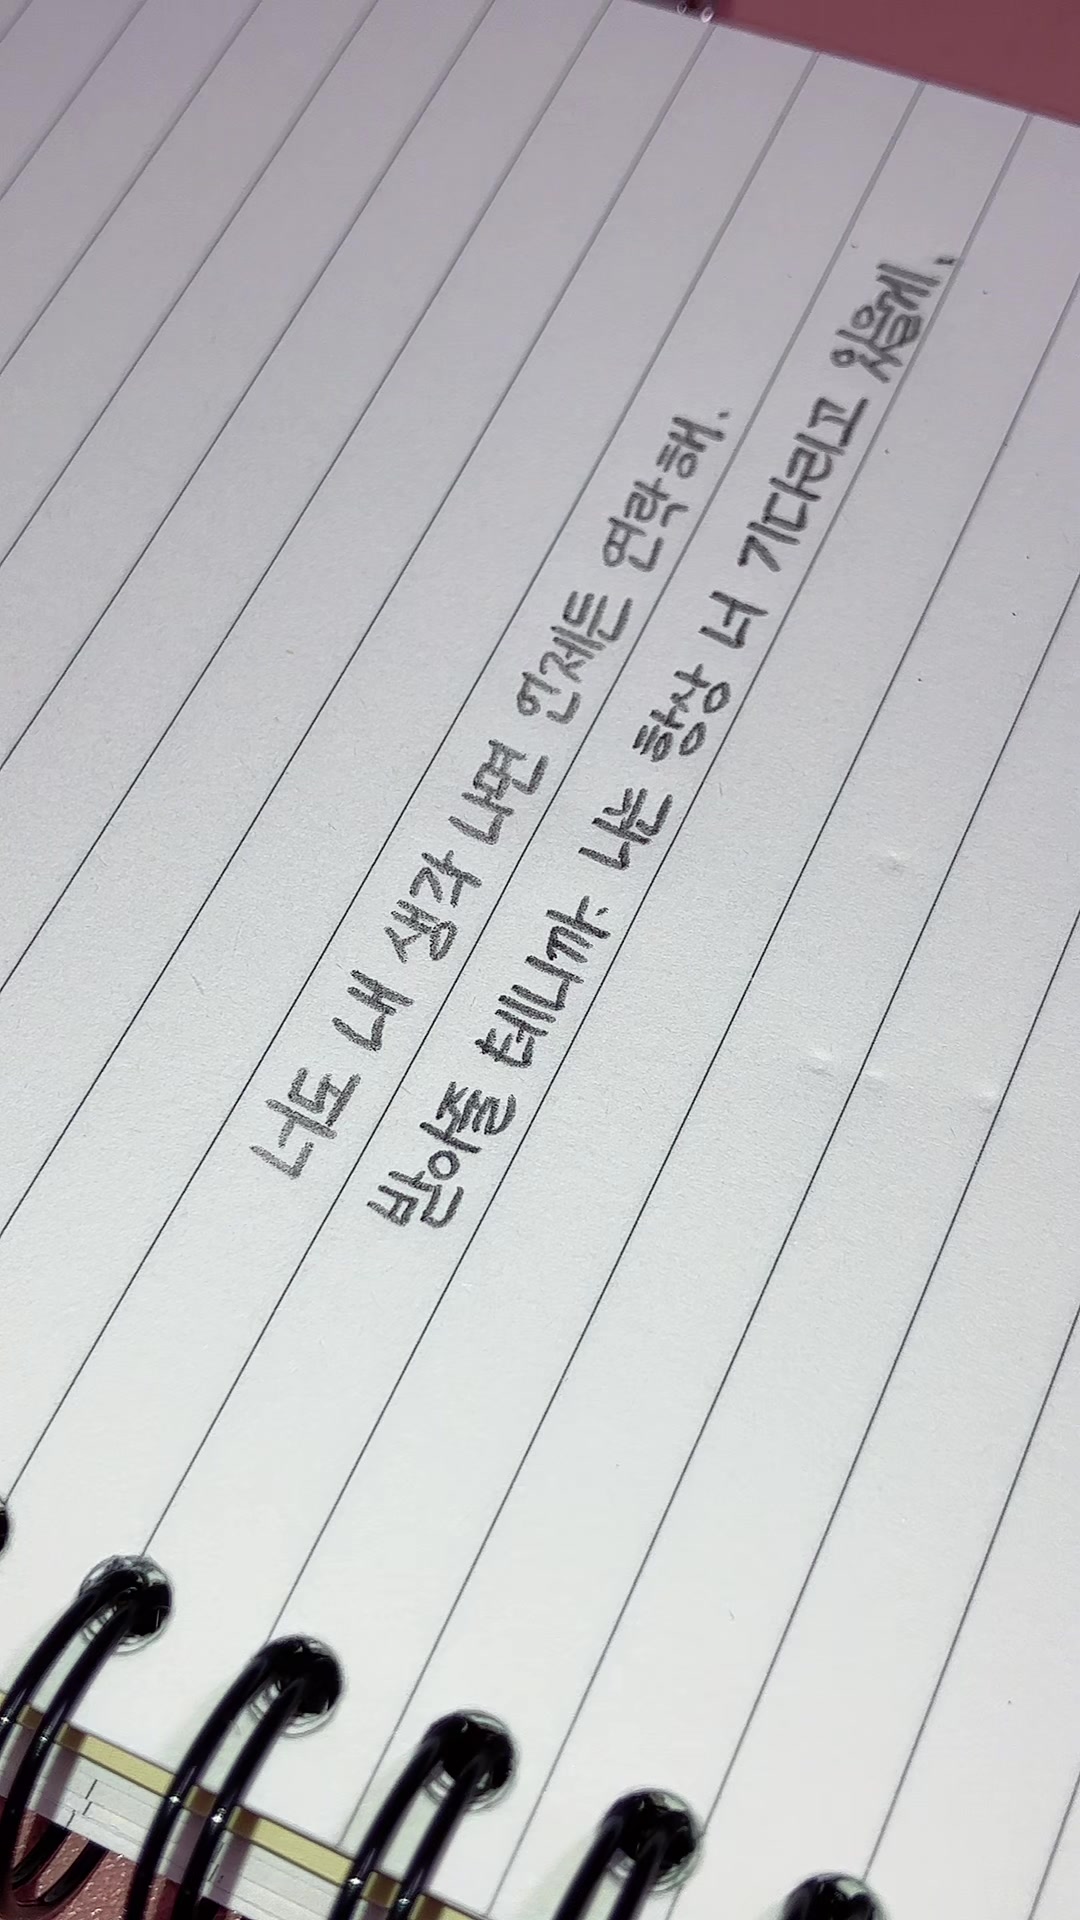 너도 내 생각 나면 언제든 연락해.
받아줄 테니까. 나는 항상 너 기다리고 있을게.